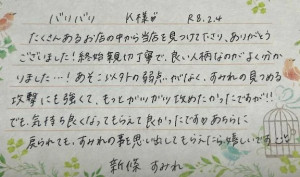 バリバリ K様 R8.2.4
たくさんあるお店の中から当店を見つけて下さり、ありがとう
ございました!終始親切丁寧で、良い人柄なのがよく分か
りました…!あそこ以外の弱点がなく、すみれの見つめる
攻撃にも強くて、もっとガツガツ攻めたかったですが!!
でも、気持ち良くなってもらえて良かったです あちらに
戻られても、すみれの事を思い出してもらえたら嬉しいです
新條 すみれ